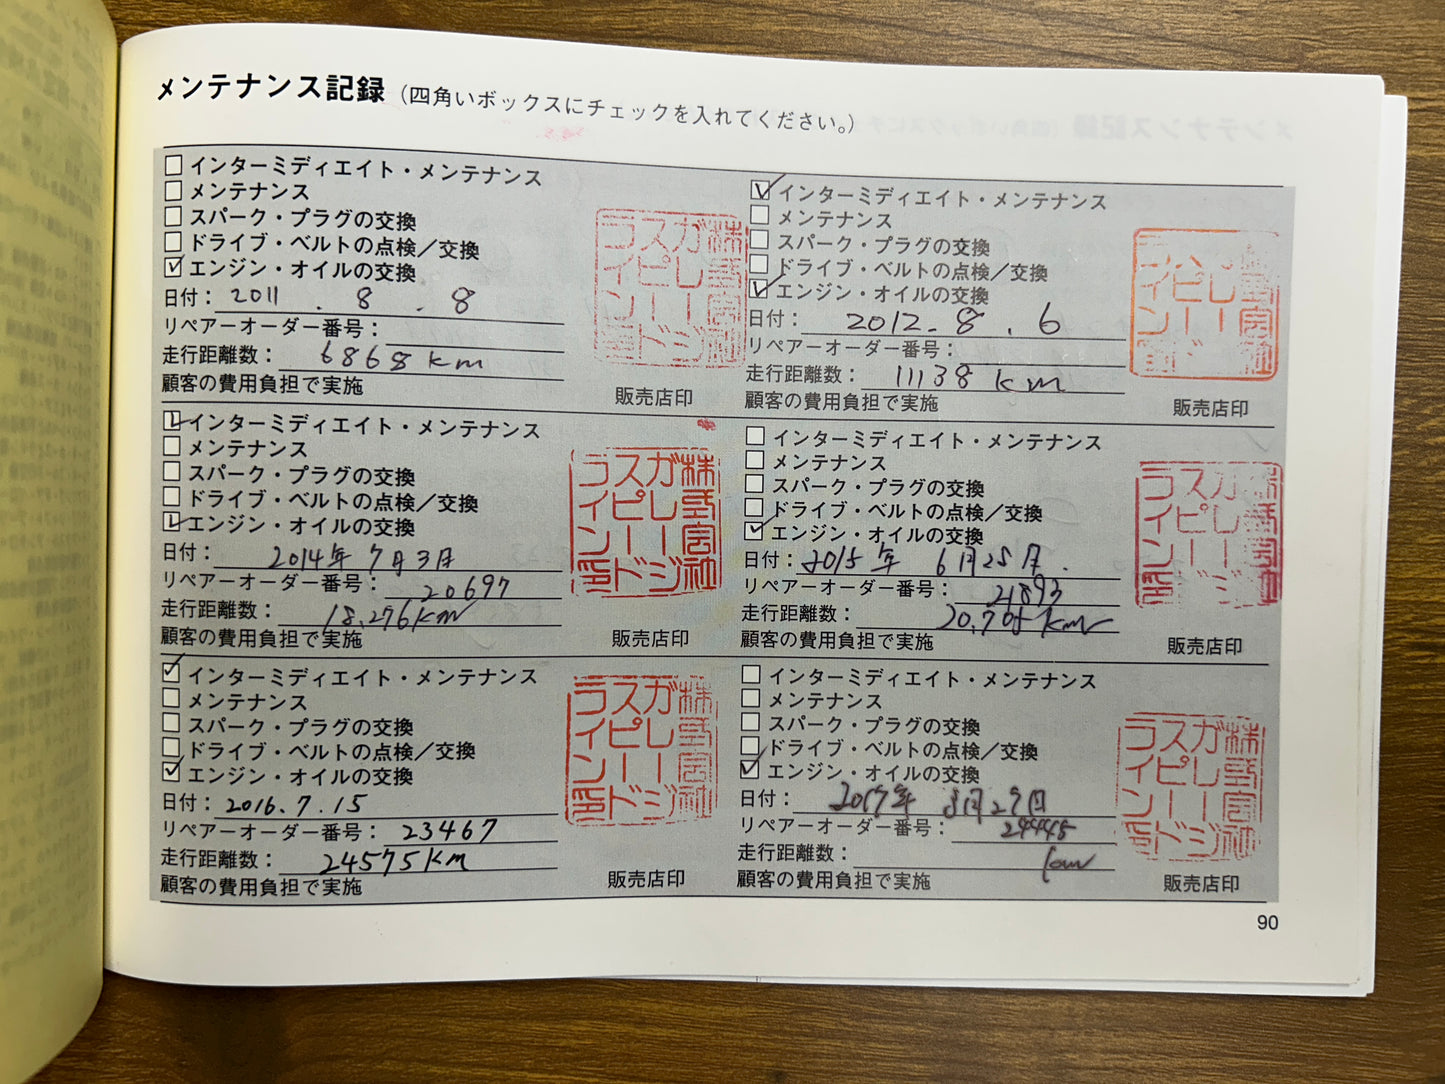 メンテナンス記録（四角いボックスにチェックを入れてください。）
インターミディエイト・メンテナンス
メンテナンス
スパーク・プラグの交換
ドライブ・ベルトの点検／交換
エンジン・オイルの交換
日付：2011.8.8
リペアーオーダー番号：
走行距離数：6868km
顧客の費用負担で実施
株式会社ガレーヂスピードライン印
販売店印
インターミディエイト・メンテナンス
メンテナンス
スパーク・プラグの交換
ドライブ・ベルトの点検／交換
エンジン・オイルの交換
日付：2012.8.6
リペアーオーダー番号：
走行距離数：11138km
顧客の費用負担で実施
販売店印
インターミディエイト・メンテナンス
メンテナンス
スパーク・プラグの交換
ドライブ・ベルトの点検／交換
エンジン・オイルの交換
日付：2014年7月3日
リペアーオーダー番号：20697
走行距離数：18,276km
顧客の費用負担で実施
販売店印
インターミディエイト・メンテナンス
メンテナンス
スパーク・プラグの交換
ドライブ・ベルトの点検／交換
エンジン・オイルの交換
日付：2015年6月25日
リペアーオーダー番号：21893
走行距離数：20,705km
顧客の費用負担で実施
販売店印
インターミディエイト・メンテナンス
メンテナンス
スパーク・プラグの交換
ドライブ・ベルトの点検／交換
エンジン・オイルの交換
日付：2016.7.15
リペアーオーダー番号：23467
走行距離数：24575km
顧客の費用負担で実施
販売店印
インターミディエイト・メンテナンス
メンテナンス
スパーク・プラグの交換
ドライブ・ベルトの点検／交換
エンジン・オイルの交換
日付：2017年8月29日
リペアーオーダー番号：24448
走行距離数：km
顧客の費用負担で実施
販売店印
90